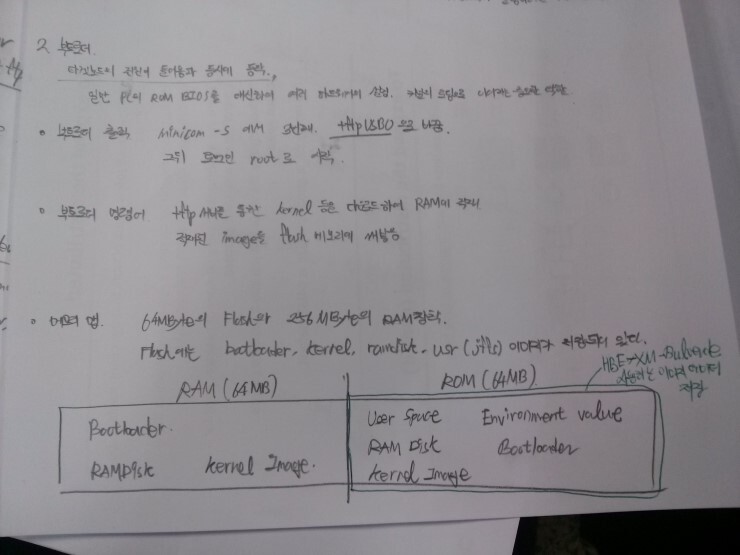 2. 부트로더.
타겟보드의 전원이 들어옴과 동시에 동작.
일반 PC의 ROM BIOS를 대신하여 여러 하드웨어의 설정.
부트로더 minicom -s 에서 ttyUSB0 으로 바꿈.
그뒤 로그인 root로
부트로더 명령어 tftp 서버를 통한 kernel 등을 다운로드하여 RAM에 적재
적재된 image를 flash 메모리에
메모리 맵. 64MByte의 Flash와 256MByte의 RAM장착.
Flash에는 bootloader, kernel, ramdisk, usr (jffs) 이미지가 저장되어 있다.
RAM (64MB) ROM (64MB)
저장
Bootloader. User Space Environment value
RAMDisk kernel Image. RAM Disk Bootloader
kernel Image